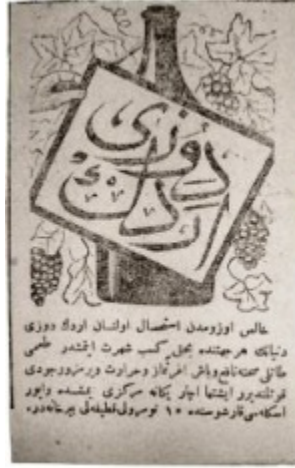 دوزی
اردك
خالص اوزومدن استحصال اولنان اردك دوزی
دنیانك هر جهتنده بحق كسب شهرت ایتمشدر طعمی
طاتلی صحته نافع وباش اغریماز وحرارت ویرمز وجودی
قوتلندیرر اشتها اچار یكانه مركزی بمشده واپور
اسكله سی قارشوسنده ١٥ نومرولی لطیفه لی بیرخانه در.